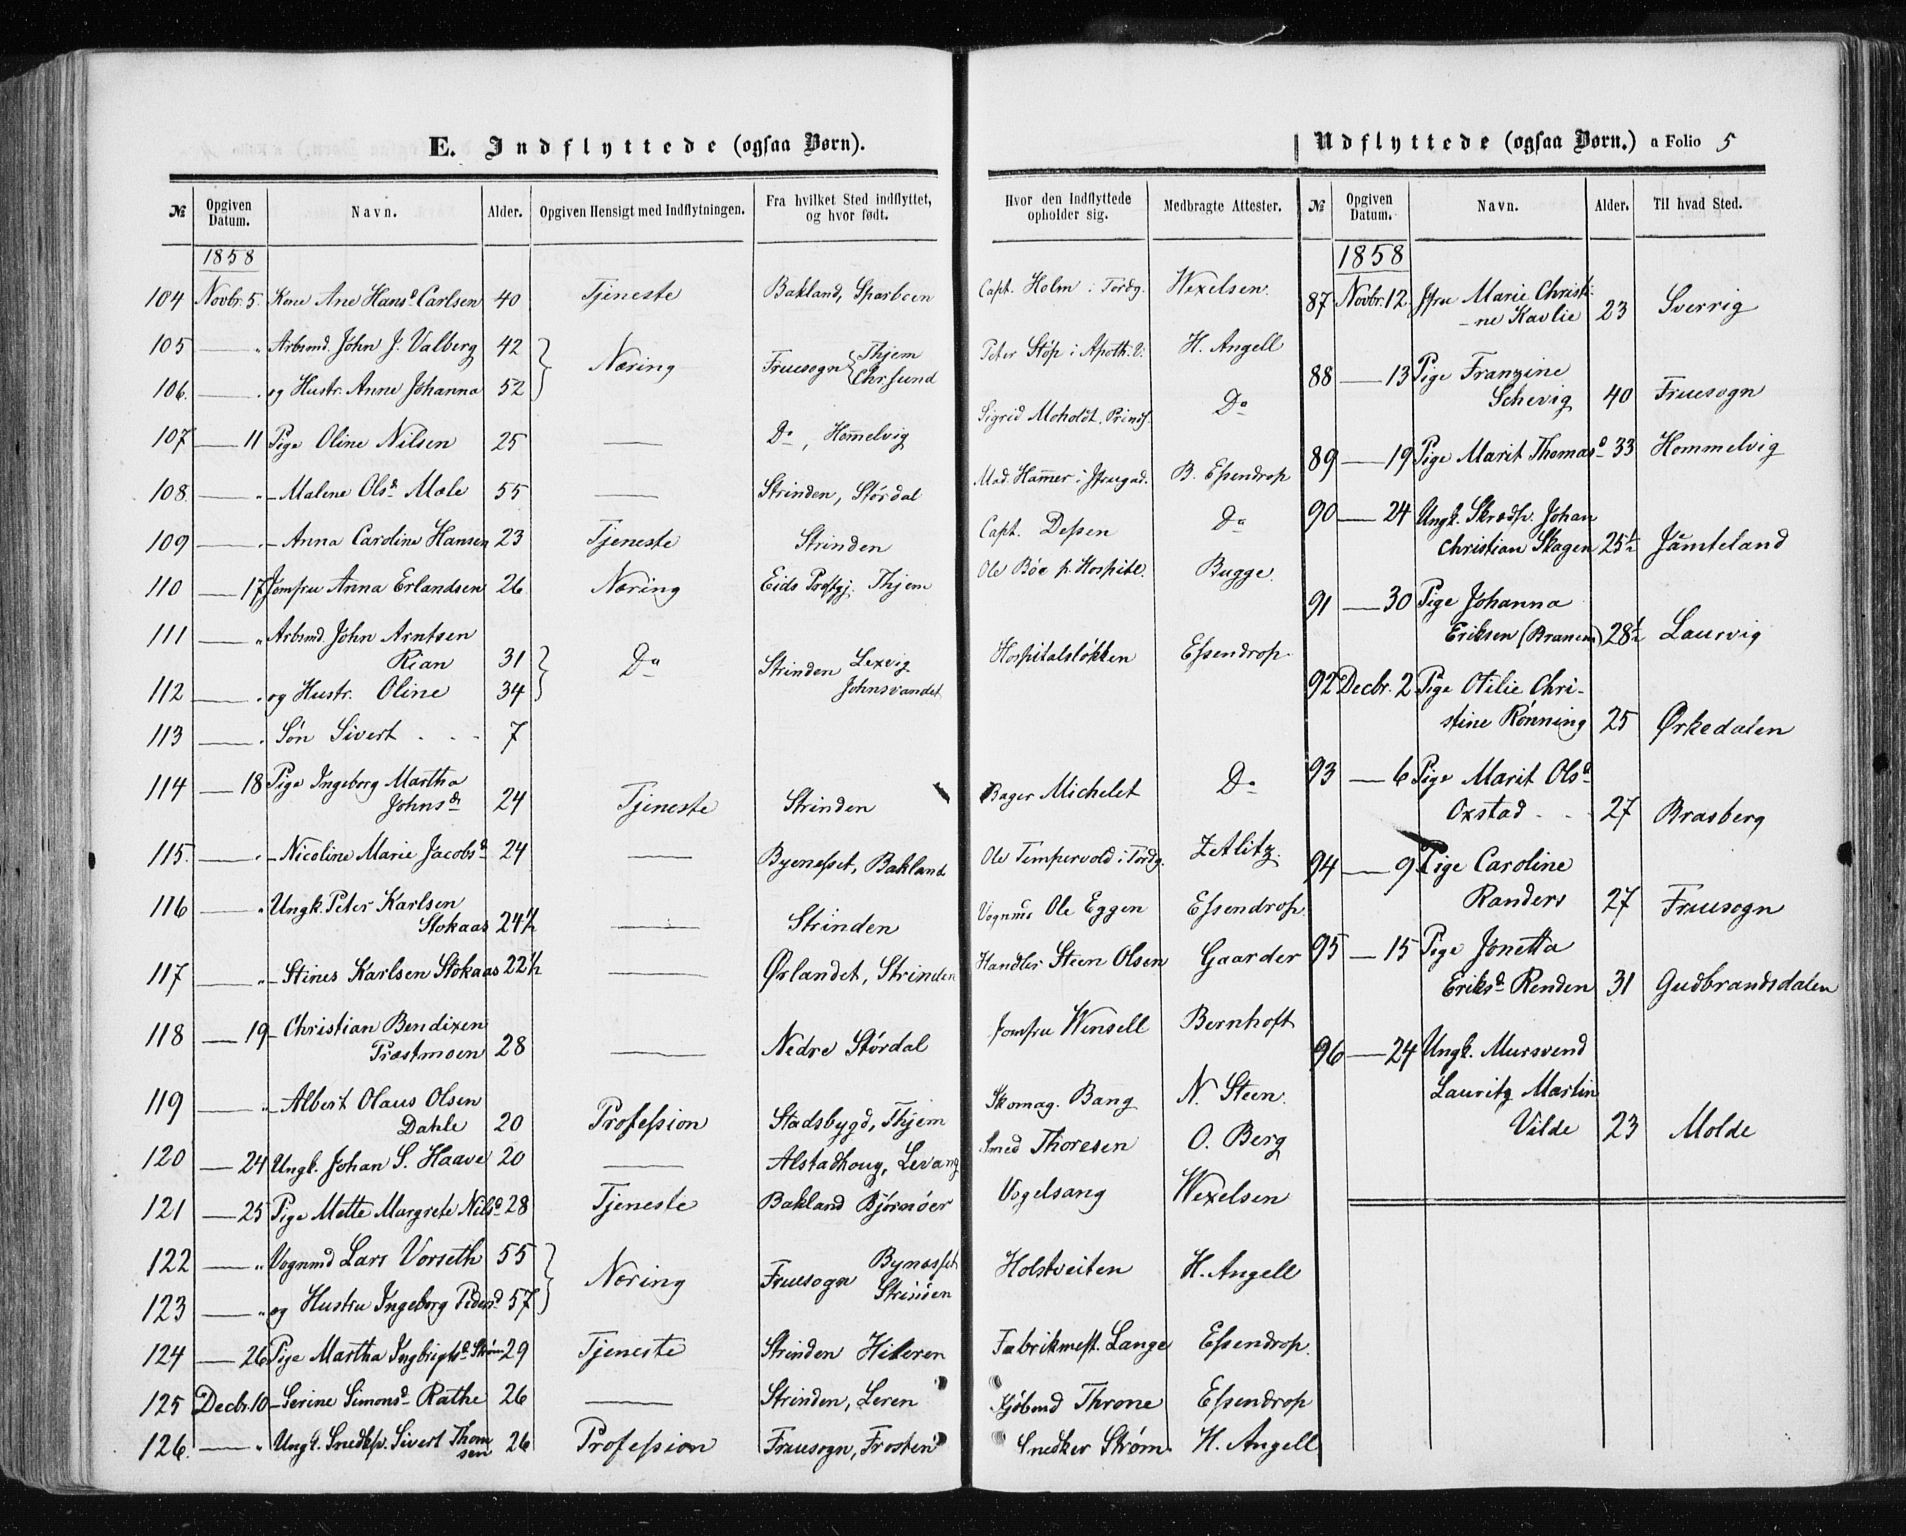 E. Indflyttede (ogsaa Børn).
№ Opgiven Datum. Navn. Alder. Opgiven Hensigt med Indflytningen. Fra hvilket Sted indflyttet, og hvor født. Hvor den Indflyttede opholder sig. Medbragte Attester.
1858
104 Novbr. 5. Kone Ane Hansd Carlsen 40 Tjeneste Bakland, Sparboen Capt. Holm i Tordg. Wexelsen.
105 — " Arbsmd. John J. Valberg 42 Næring Fruesogn Thjem Peter Støp i Apoth. V. H. Angell
106. — . og Hustr. Anne Johanna 52 Chrsund
107 — 11 Pige Oline Nilsen 25 — Do, Hom̄elvig Sigrid Moholdt, Prinds. Do
108. — " — Malene Olsd Mæle 55 — Strinden, Størdal Mad. Ham̄er i Jfrugad. B. Essendrop
109 — — Anna Caroline Hansen 23 Tjeneste Strinden Capt. Dessen Do
110 — 17 Jomfru Anna Erlandsen 26 Næring Eids Prstgj. Thjem Ole Böe p. Hospite. Bugge.
111 — " Arbsmd. John Arntsen
Rian 31 Do Strinden Lexvig Hospitalsløkken Essendrop.
112 — . og Hustr. Oline 34 Johnsvandet
113 — . Søn Sivert . . . 7
114 — 18 Pige Ingeborg Martha
Johnsdr 24 Tjeneste Strinden Bager Michelet Do
115. — " — Nicoline Marie Jacobsd 24 — Byenesset, Bakland Ole Tempervold i Tordg. Zetlitz.
116 — " Ungk. Peter Karlsen
Stokaas 24½ — Strinden Vognmd Ole Eggen Essendrop.
117 — " — Stines Karlsen Stokaas 22½ — Ørlandet, Strinden Handler Steen Olsen Gaarder
118 — 19 — Christian Bendixen
Præstmoen 28 — Nedre Størdal Jomfru Wensell Bernhoft
119 — " — Albert Olaus Olsen
Dahle 20 Profession Stadsbygd, Thjem Skomag. Bang N. Steen.
120 — 24 Ungk. Johan S. Haave 20 — Alstadhoug, Levang Smed Thoresen O. Berg
121 — 25 Pige Mette Margrete Nilsd 28 Tjeneste Bakland Bjørnøer Vogelsang Wexelsen
122 — " Vognmd Lars Vorseth 55 Næring Fruesogn Bynæsset Holstveiten H. Angell
123 — " og Hustru Ingeborg Pedersd 57 Strinden
124 — 26 Pige Martha Ingbrigtsd Strøm 29 Tjeneste Strinden Hiteren Fabrikmest. Lange Essendrop.
125 Decbr. 10 — Serine Simonsd Rathe 26 — Strinden, Leren Kjöbmd Throne Essendrop
126. — " Ungk. Snedksv. Sivert Thomsen 26 Profession Fruesogn, Frosten Snedker Strøm H. Angell
Udflyttede (ogsaa Børn.) a Folio 5
№ Opgiven Datum. Navn. Alder. Til hvad Sted.
1858
87 Novbr. 12. Jfru Marie Christi-
-ne Kavlie 23 Sverrig
88 — 13 Pige Franzine
Schevig 40 Fruesogn
89 — 19 Pige Marit Thomasd 33 Hommelvig
90 — 24 Ungk. Skrædsv. Johan
Christian Skagen 25½ Jämteland
91 — 30 Pige Johanna
Eriksen 28½ Laurvig
92 Decbr. 2 Pige Otilie Chri-
stine Rønning 25 Ørkedalen
93 — 6 Pige Marit Olsd
Oxstad . . 27 Brasberg
94 — 9 Pige Caroline
Randers 27 Fruesogn
95 — 15 Pige Jonetta
Eriksd Renden 31 Gudbrandsdalen
96 — 24 Ungk. Mursvend
Lauritz Martin
Vilde 23 Molde